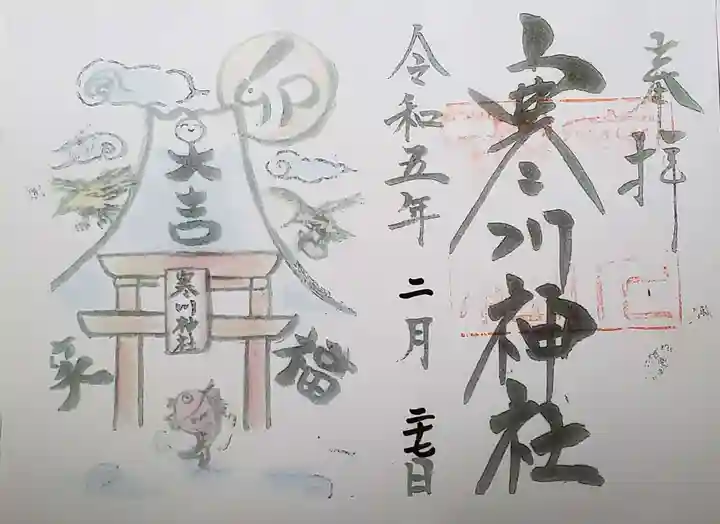 奉拝
寒川神社
令和五年 二月 二七日
卯
大吉
寒川神社
福
来